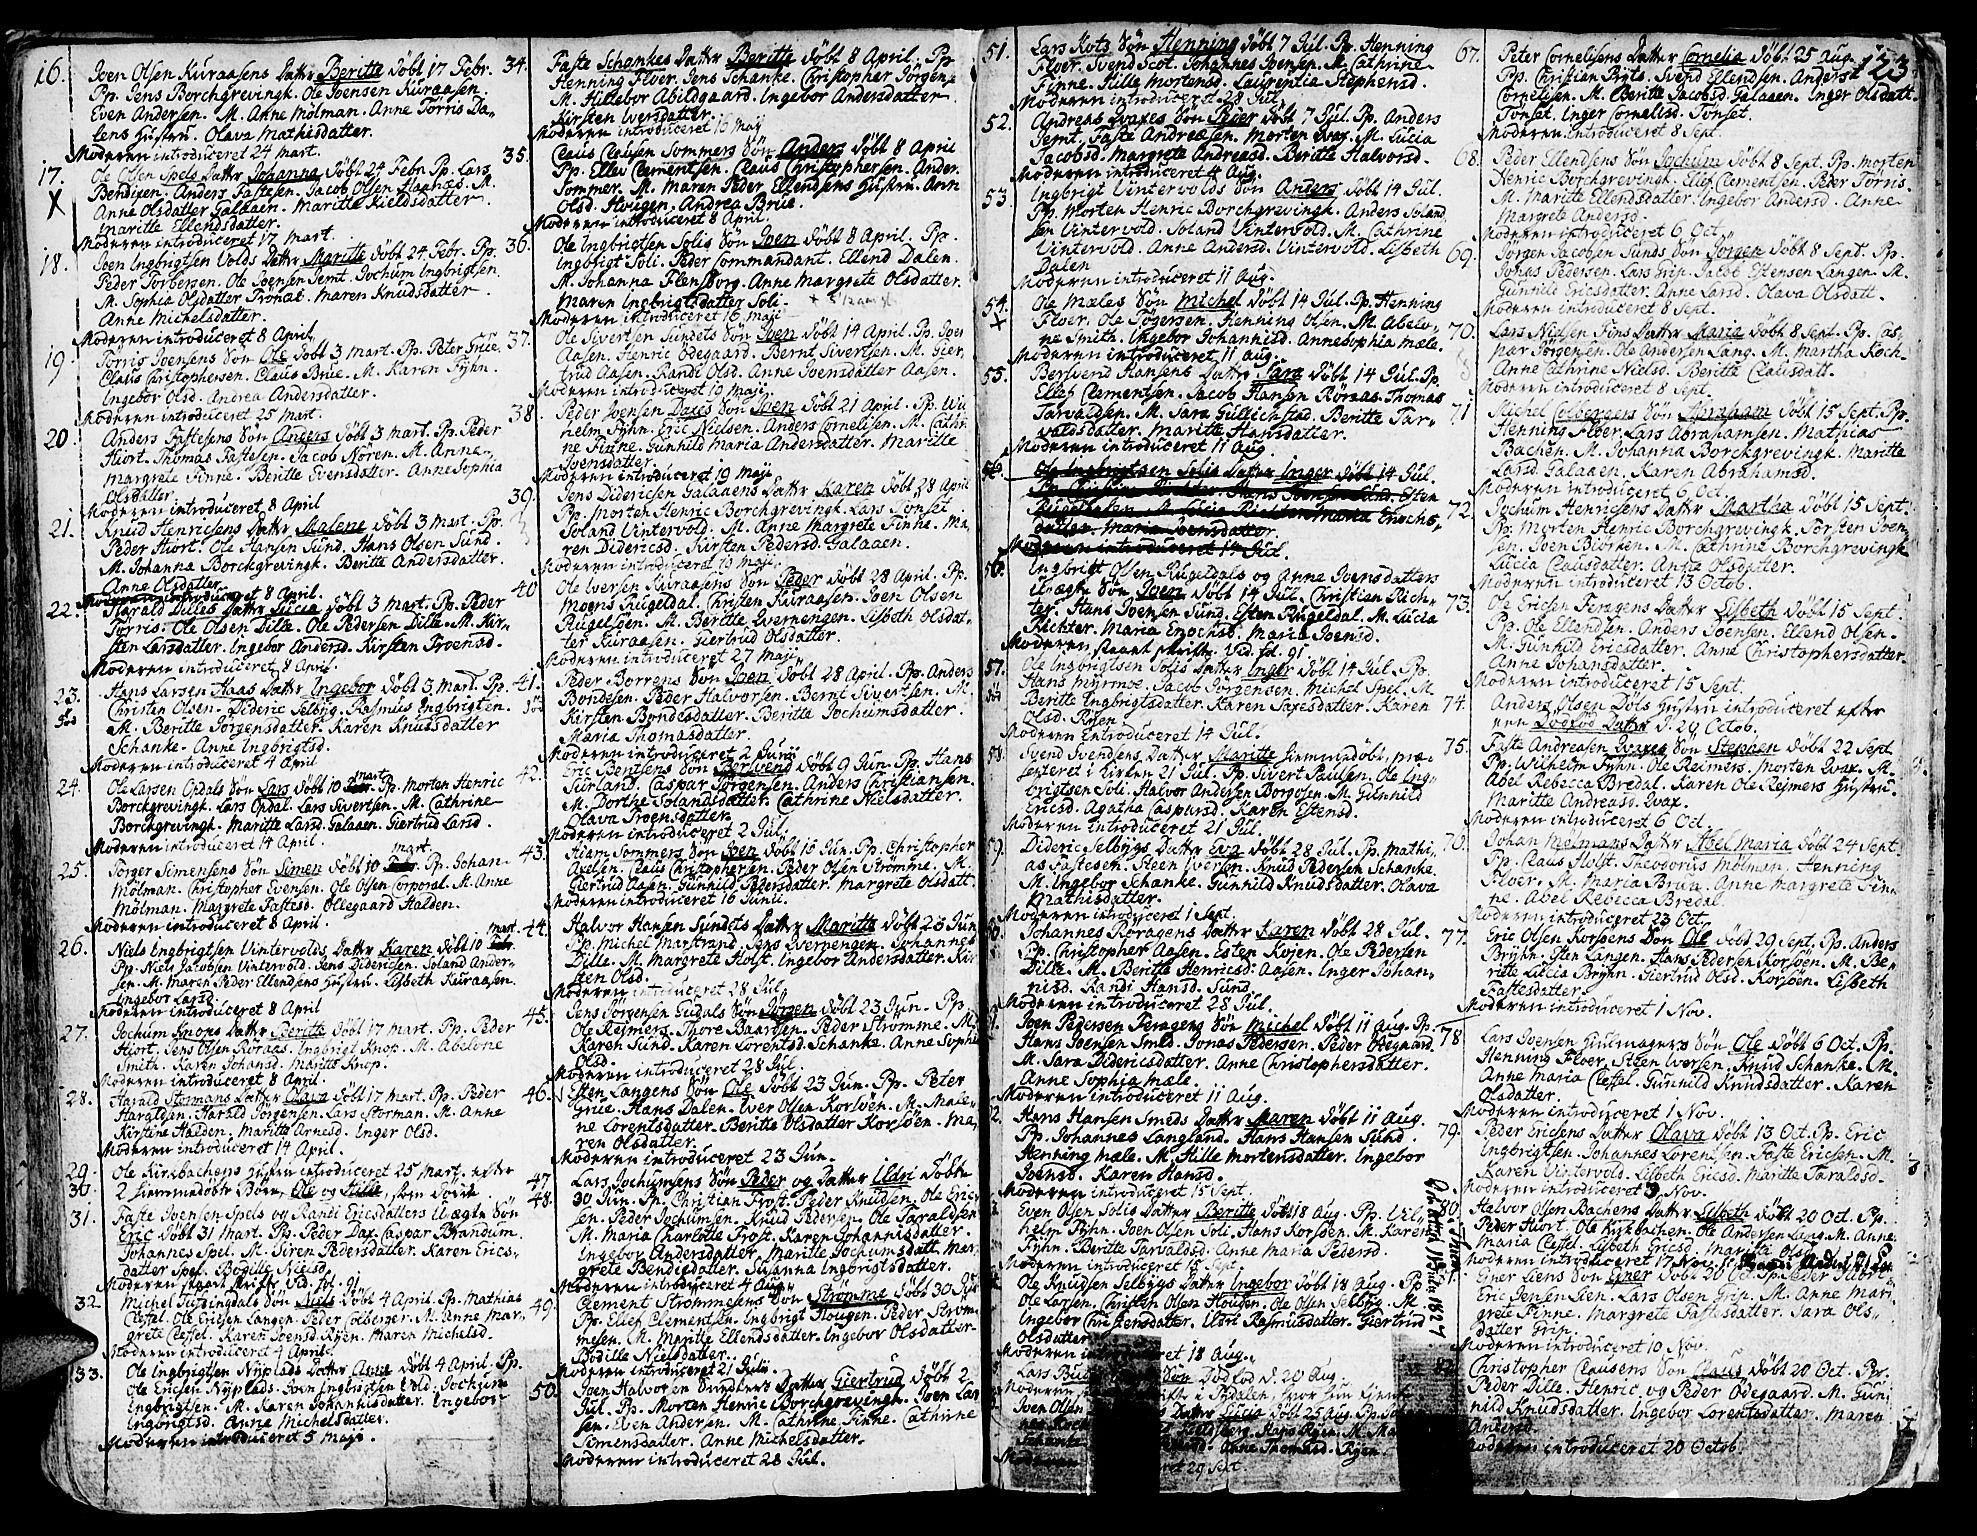 16. Joen Olsen Kuraasens Datter Beritte döbt 17 Febr.
Pp. Jens Borchgrevingk. Ole Joensen Kuraasen.
Even Andersen. M. Anne Mölman. Anne Torris Da-
lens Hustru. Olava Mathisdatter.
Moderen introduceret 24 Mart.
17. Ole Olsen Spels Datter Johanna döbt 24 Febr. Pp. Lars
X Bendixen. Anders Fastesen. Jacob Olsen Haanes. M.
Anne Olsdatter Galaaen. Maritte Kieldsdatter.
Maritte Ellendsdatter.
Moderen introduceret 17 Mart.
18. Joen Ingbrigtsen Volds Datter Maritte döbt 24 Febr. Pp.
Peder Torbersen. Ole Joensen Jemt. Jochum Ingbrigtsen.
M. Sophia Olsdatter Trönæs. Maren Knudsdatter.
Anne Michelsdatter.
Moderen introduceret 8 April.
19. Torris Joensens Sön Ole döbt 3 Mart. Pp. Peter Grüe.
Claus Christophersen. Claus Brüe. M. Karen Fyhn.
Ingebor Olsd. Andrea Andersdatter.
Moderen introduceret 25 Mart.
20 Anders Fastesens Sön Anders döbt 3 Mart. Pp. Peder
Hiort. Thomas Fastesen. Jacob Noren. M. Anne
Margrete Finne. Beritte Evensdatter. Anne Sophia
Olsdatter
Moderen introduceret 8 April
21. Knud Henricsens Datter Malene döbt 3 Mart. Pp.
Peder Hiort. Ole Hansen Sund. Hans Olsen Sund.
M. Johanna Borchgrevingk. Beritte Andersdatter.
Anne Olsdatter
Moderen introduceret 8 April.
22. Harald Dilles Datter Lucia döbt 3 Mart. Pp. Peder
Torris. Ole Olsen Dille. Ole Pedersen Dille. M. Kir-
sten Larsdatter. Ingebor Andersd. Kirsten Troensd.
Moderen introduceret 8 April.
23. Hans Larsen Haas Datter Ingebor döbt 3 Mart. Pp.
Christen Olsen. Dideric Selbyg. Rasmus Ingbrigtsen.
M. Beritte Jörgensdatter. Karen Knudsdatter
Schanke. Anne Ingbrigtsd.
Moderen introduceret 4 April
24. Ole Larsen Opdals Sön Lars döbt 10 Mart. Pp. Morten Henric
Borchgrevingk. Lars Opdal. Lars Sivertsen. M. Cathrine
Borchgrevingk. Maritte Larsd. Galaaen. Giertrud Larsd.
Moderen introduceret 14 April.
25. Törger Simensens Sön Simen döbt 10 Mart. Pp. Johan
Mölman. Christopher Evensen. Ole Olsen Corporal. M. Anne
Mölman. Margrete Fastesd. Ollegaard Halden.
Moderen introduceret 8 April.
26. Niels Ingbrigtsen Vintervolds Datter Karen döbt 10 Mart.
Pp. Niels Jacobsen Vintervold. Jens Didericsen. Soland Ander-
sen. M. Maren Peder Ellendsens Hustru. Lisbeth Kuraasen.
Ingebor Larsd.
Moderen introduceret 8 April
27. Jochum Knops Datter Beritte döbt 17 Mart. Pp. Peder
Hiort. Jens Olsen Röraas. Ingbrigt Knop. M. Abelone
Smith. Karen Johansd. Maritte Knop.
Moderen introduceret 8 April.
28. Harald Stormans Datter Olava döbt 17 Mart. Pp. Peder
Haraldsen. Harald Jörgensen. Lars Storman. M. Anne
Kirstine Halden. Maritte Arnesd. Inger Olsd.
Moderen introduceret 14 April.
29. Ole Kirkbachens Hustru introduceret 25 Mart. efter
30 2 Hiemmedöbte Börn, Ole og Sille, som döde
31. Faste Joensen Spels og Randi Ericsdatters Uægte Sön
Eric döbt 31 Mart. Pp. Peder Dax. Caspar Brandum.
Johannes Spel. M. Siren Pedersdatter. Karen Erics-
datter Spel. Bodille Nielsd.
Moderen staaet skrifte Vid. fol. 91
32. Michel Fundingdals Sön Nils döbt 4 April. Pp. Mathias
Cleffel. Ole Ericsen Langen. Peder Colberger. M. Anne Mar-
grete Cleffel. Karen Joensd. Ryen. Maren Michelsd.
Moderen introduceret 4 April.
33. Ole Ingbrigtsen Nyplads Datter Anne döbt 4 April. Pp.
Ole Ericsen Nyplads. Joen Ingbrigtsen Vold. Jochum
Ingbrigtsen. M. Karen Johannisdatter. Ingebor
Ingbrigtsd. Anne Michelsdatter.
Moderen introduceret 5 Maji.
34. Faste Schankes Datter Beritte döbt 8 April. Pp
Henning Floer. Jens Schanke. Christopher Jörgens.
M. Hillebor Abildgaard. Ingebor Andersdatter.
Kirsten Iversdatter.
Moderen introduceret 16 Maij
35. Claus Clausen Sommers Sön Anders döbt 8 April
Pp. Ellev Clementsen. Claus Christophersen. Ander.
Sommer. M. Maren Peder Ellendsens Hustru. Ann
Olsd. Hougen. Andrea Brüe.
Moderen introduceret 8 April.
36. Ole Ingbrigtsen Solis Sön Joen döbt 8 April. Pp.
Ingbrigt Soli. Peder Commandant. Ellend Dalen.
M. Johanna Flensborg. Anne Margrete Olsdatter.
Maren Ingbrigtsdatter Soli.
Moderen introduceret 16 Maji
37. Ole Sivertsen Sundets Sön Joen döbt 14 April. Pp. Joen
Aasen. Henric Ödegaard. Bernt Sivertsen. M. Gier-
trud Aasen. Randi Olsd. Anne Joensdatter Aasen.
Moderen introduceret 19 Maji
38. Peder Joensen Daxes Sön Joen döbt 21 April. Pp. Wil
helm Fyhn. Eric Nielsen. Anders Cornelisen. M. Cathr
ne Finne. Gunhild Maria Andersdatter. Maritte
Joensdatter.
Moderen introduceret 19 Maij
39. Jens Didericsen Galaaens Datter Karen döbt 28 April
Pp. Morten Henric Borchgrevingk. Lars Tonset
Soland Vintervold. M. Anne Margrete Finne. Ma-
ren Didericsd. Kirsten Pedersd. Galaaen.
Moderen introduceret 19 Maji.
40 Ole Iversen Kuraasens Sön Peder döbt 28 April. Pp.
Moens Rugeldal. Christen Kuraasen. Joen Olsen
Rugelsöen. M. Beritte Qvernengen. Lisbeth Olsdat-
ter Kuraasen. Giertrud Olsdatter.
Moderen introduceret 27 Maji
41. Peder Borrens Sön Joen döbt 28 April. Pp. Anders
Bondesen. Peder Halvorsen. Bernt Sivertsen. M.
Kirsten Bondesdatter. Beritte Jochumsdatter.
Maria Thomasdatter.
Moderen introduceret 2 Junii
42. Eric Bentsens Sön Bersvend döbt 9 Jun. Pp. Hans
Fürland. Caspar Jörgensen. Anders Christiansen
M. Dorthe Solandsdatter. Cathrine Nielsdatter.
Olava Troensdatter
Moderen introduceret 2 Jul.
43. Adam Sommers Sön Joen döbt 16 Jun. Pp. Christopher
Axelsen. Claus Christophersen. Peder Olsen Strömme. M.
Giertrud Aasen. Gunhild Pedersdatter. Margrete Olsdatt.
Moderen introduceret 16 Junii.
44. Halvor Hansen Sundets Datter Maritte döbt 23 Jun
Pp. Michel Marstrand. Jens Qvernengen. Johannes
Dille. M. Margrete Holst. Ingebor Andersdatter. Kir
sten Olsd.
Moderen introduceret 28 Jul.
45. Jens Jörgensen Gudals Sön Jörgen döbt 23 Jun. Pp.
Ole Reimers. Thore Baardsen. Peder Strömme. M.
Karen Sund. Karen Lorentsd. Schanke. Anne Sophi
Olsd.
Moderen introduceret 28 Jul.
46. Esten Langens Sön Ole döbt 23 Jun. Pp. Peter
Grüe. Hans Dalen. Iver Olsen Korsöen. M. Male-
ne Lorentsdatter. Beritte Olsdatter Korsöen. Ma-
ren Olsdatter.
Moderen introduceret 23 Jun.
47 Lars Jochumsens Sön Peder og Datter Ildri döbte
48. 30 Jun. Pp. Christian Frost. Peder Knudsen. Ole Eric-
sen. Peder Jochumsen. Knud Pedersen. Ole Taraldsen
M. Maria Charlotte Frost. Karen Johannisdatter.
Ingebor Andersdatter. Maritte Jochumsdatt. Mar
grete Bendicsdatter. Susanna Ingbrigtsdatter.
Moderen introduceret 4 Aug.
49. Clement Strömmesens Sön Strömme döbt 30 Jun
Pp. Ellef Clementsen. Ingbrigt Hougen. Peder Ström
mesen. M. Maritte Ellendsdatter. Ingebor Olsdatter.
Bodille Nielsdatter.
Moderen introduceret 21 Julii
50. Joen Halvorsen Sundters Datter Giertrud döbt 2
Jul. Pp. Morten Henric Borchgrevingk. Joen Lar
sen. Even Andersen. M. Cathrine Finne. Cathrine
Simensdatter. Anne Michelsdatter.
Moderen introduceret 28 Jul.
51. Lars Kots Sön Henning döbt 7 Jul. Pp. Henning
Floer. Svend Scot. Johannes Joensen. M. Cathrine
Finne. Hille Mortensd. Laurentia Stephensd.
Moderen introduceret 28 Jul.
52. Andreas Qvaxes Sön Peder döbt 7 Jul. Pp. Anders
Jemt. Faste Andreæsen. Morten Qvax. M. Lucia
Jacobsd. Margrete Andreasd. Beritte Halvorsd.
Moderen introduceret 4 Aug.
53. Ingbrigt Vintervolds Sön Anders döbt 14 Jul.
Pp. Morten Henric Borchgrevingk. Anders Soland
sen Vintervold. Soland Vintervold. M. Cathrine
Vintervold. Anne Andersd. Vintervold. Lisbeth
Dalen
Moderen introduceret 11 Aug.
54. Ole Mæles Sön Michel döbt 14 Jul. Pp. Henning
X Floer. Ole Tögersen. Henning Olsen. M. Abelo-
ne Smith. Ingebor Johannisd. Anne Sophia Mæle.
Moderen introduceret 11 Aug.
55. Bersvend Hansens Datter Sara döbt 14 Jul. Pp
Ellef Clementsen. Jacob Hansen Röraas. Thomas
Tarvaldsen. M. Sara Gullichsted. Beritte Tar-
valdsdatter. Maritte Hansdatter.
Moderen introduceret 11 Aug.
56. Ole Ingbrigtsen Solis Datter Inger döbt 14 Jul.
Moderen introduceret 14 Jul.
56. Ingbrigt Olsen Rugeldals og Anne Joensdatters
Uægte Sön Joen döbt 14 Jul. Christian Rich-
ter. Hans Joensen Sund. Esten Rugeldal. M. Lucia
Richter. Maria Enochsd. Maria Joensd.
Moderen staaet skrifte. Vid. fol. 91
57. Ole Ingbrigtsen Solis Datter Inger döbt 14 Jul. Pp.
Hans Myrmoe. Jacob Jörgensen. Michel Spel. M.
Beritte Ingbrigtsdatter. Karen Saxesdatter. Karen
Olsd. Ryen.
Moderen introduceret 14 Jul.
58. Svend Svendsens Datter Maritte Hiemmedöbt, præ-
senteret i Kirken 21 Jul. Pp. Sivert Paulsen. Ole Ing-
brigtsen Soli. Halvor Andersen Borgosen. M. Gunhild
Ericsd. Agatha Caspersd. Karen Estensd.
Moderen introduceret 21 Jul.
59. Dideric Selbygs Datter Eva döbt 28 Jul. Pp. Mathi-
as Fastesen. Steen Iversen. Knud Pedersen Schanke.
M. Ingebor Schanke. Gunhild Knudsdatter. Olava
Mathisdatter.
Moderen introduceret 1 Sept.
60. Johannes Röragens Datter Karen döbt 28 Jul.
Pp. Christopher Aasen. Esten Kojen. Ole Pedersen
Dille. M. Beritte Henricsd. Aasen. Inger Johan-
nisd. Randi Hansd. Sund.
Moderen introduceret 28 Jul.
Joen Pedersen Feragens Sön Michel döbt 11 Aug. Pp.
Hans Joensen Smed. Jonas Pedersen. Peder Ödegaard.
M. Sara Didericsdatter. Anne Christophersdatter.
Anne Sophia Mæle.
Moderen introduceret 11 Aug.
Hans Hansen Smeds Datter Maren döbt 11 Aug.
Pp. Johannes Langland. Hans Hansen Sund.
Henning Mæle. M. Hille Mortensdatter. Ingebor
Joensd. Karen Hansd.
Moderen introduceret 15 Sept.
Even Olsen Solis Datter Beritte döbt 18 Aug. Pp. Vil-
helm Fyhn. Joen Olsen Soli. Hans Korsöen. M. Karen
Fyhn. Beritte Tarvaldsd. Anne Maria Pedersd.
Moderen introduceret 15 Sept.
Ole Knudsen Selbygs Datter Ingebor döbt 18 Aug. Pp
Ole Larsen. Christen Olsen Hougen. Ole Olsen Selbyg. M.
Ingebor Christensdatter. Ildri Rasmusdatter. Giertrud
Olsdatter
Moderen introduceret 18 Aug.
Lars Sön död föd d. 20 Aug.
Joen Olsen Datter Lucia döbt 25 Aug. Pp.
Moderen 29 Sept.
123
67. Peter Cornelisens Datter Cornelia döbt 25 Aug.
Pp. Christian Rigts. Svend Ellendsen. Anders
Cornelisen. M. Beritte Jacobsd. Galaaen. Inger Olsdatt.
Tonset. Inger Cornelisd. Tonset.
Moderen introduceret 8 Sept.
68. Peder Ellendsens Sön Jochum döbt 8 Sept. Pp. Morten
Henric Borchgrevingk. Ellef Clementsen. Peder Törris.
M. Maritte Ellendsdatter. Ingebor Andersd. Anne
Margrete Andersd.
Moderen introduceret 6 Oct.
69. Jörgen Jacobsen Sunds Sön Jörgen döbt 8 Sept. Pp.
Johas Pedersen. Lars Grip. Jacob Jensen Langen. M.
Gunhild Ericsdatter. Anne Larsd. Olava Olsdatt.
Moderen introduceret 8 Sept.
70. Lars Nielsen Fins Datter Maria döbt 8 Sept. Pp. Cas-
pær Jörgensen. Ole Andersen Lang. M. Martha Koch.
Anne Cathrine Nielsd. Beritte Clausdatt.
Moderen introduceret 8 Sept.
71 Michel Colbergers Sön Abraham döbt 15 Sept. Pp.
Henning Floer. Lars Abrahamsen. Mathias
Bachen. M. Johanna Borckgrevingk. Maritte
Larsd. Galaaen. Karen Abrahamsd.
Moderen introduceret 6 Oct.
72. Jochum Henricsens Datter Martha döbt 15 Sept.
Pp. Morten Henric Borchgrevingk. Torsten Joen-
sen. Joen Biörken. M. Cathrine Borchgrevingk
Lucia Clausdatter. Anne Olsdatter.
Moderen introduceret 13 Octob.
73. Ole Ericsen Feragens Datter Lisbeth döbt 15 Sept.
Pp. Ole Ellendsen. Anders Joensen. Ellend Olsen.
M. Gunhild Ericsdatter. Anne Christophersdatter.
Anne Johansdatter.
Moderen introduceret 15 Sept.
74. Anders Olsen Döls Hustru introduceret efter
een Dödföd Datter d. 29 Octob.
75. Faste Andreasen Qvaxes Sön Stephen döbt 22 Sept
Pp. Wilhelm Fyhn. Ole Reimers. Morten Qvax. M.
Abel Rebecca Bredal. Karen Ole Rejmers Hustru.
Maritte Andreasd. Qvax.
Moderen introduceret 6 Oct.
76. Johan Mölmans Datter Abel Maria döbt 24 Sept.
Pp. Claus Holst. Theodorius Mölman. Henning
Floer. M. Maria Brun. Anne Margrete Fin-
ne. Abel Rebecca Bredal.
Moderen introduceret 23 Oct.
77. Eric Olsen Korsöens Sön Ole döbt 29 Sept. Pp. Anders
Bryhn. Sten Langen. Hans Pedersen Korsöen. M. Be-
rite Lucia Bryhn. Giertrud Olsd. Korsöen. Lisbeth
Fastesdatter.
Moderen introduceret 1 Nov.
78 Lars Joensen Hiulmagers Sön Ole döbt 6 Oct. Pp.
Henning Floer. Steen Iversen. Knud Schanke. M.
Anne Maria Cleffel. Gunhild Knudsdatter. Karen
Olsdatter.
Moderen introduceret 1 Nov.
79. Peder Ericsens Datter Olava döbt 13 Oct. Pp. Eric
Ingbrigtsen. Johannes Lorensen. Faste Ericsen. M.
Karen Vintervold. Lisbeth Ericsd. Maritte Taraldsd.
Moderen introduceret 3 Nov.
80. Halvor Olsen Bachens Datter Lisbeth döbt 20 Oct. Pp.
Peder Hiort. Ole Kirkbachen. Ole Andersen Lang. M. Anne
Maria Cleffel. Lisbeth Ericsd. Maritte Olsd.
Moderen introduceret 17 Nov.
Einer Liens Sön Einer döbt 20 Oct. Pp. Peder Hiort.
Eric Jensen Lien. Lars Olsen Grip. M. Anne Mar-
grete Finne. Margrete Fastesdatter. Sara Ols-
datter Grip.
Moderen introduceret 10 Nov.
82. Christopher Clausens Sön Claus döbt 20 Oct. Pp.
Peder Dille. Henric og Peder Ödegaard. M. Gun-
hild Knudsdatter. Ingebor Lorentsdatter. Maren
Andersd.
Moderen introduceret 20 Octob.